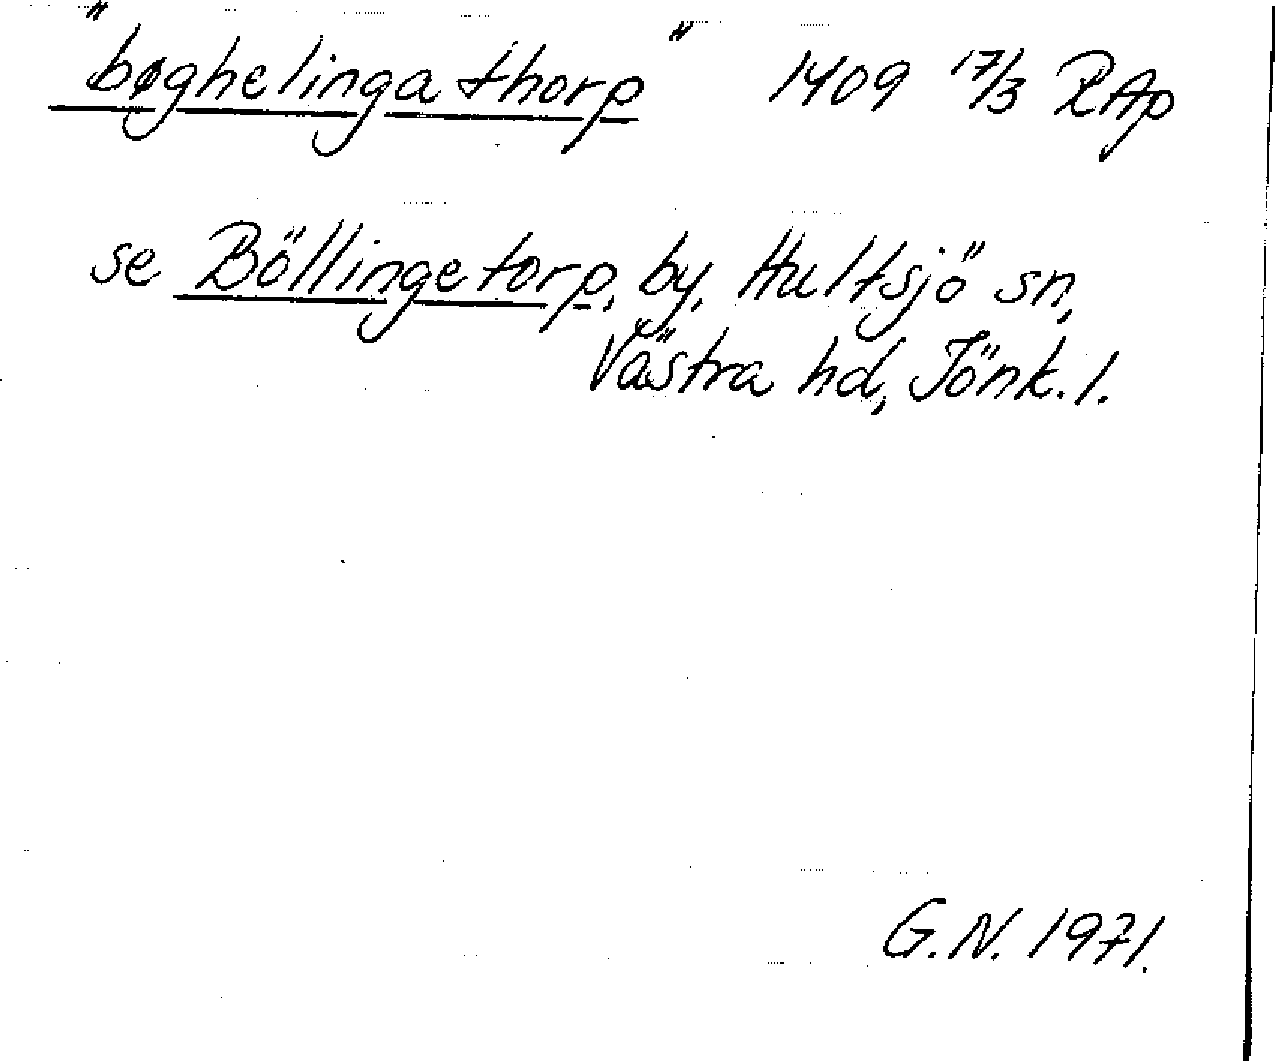 "bøghelinga thorp" 1409 17/3 RAp
se Böllingetorp, by, Hultsjö sn,
Västra hd, Jönk. l.
G.N. 1971.